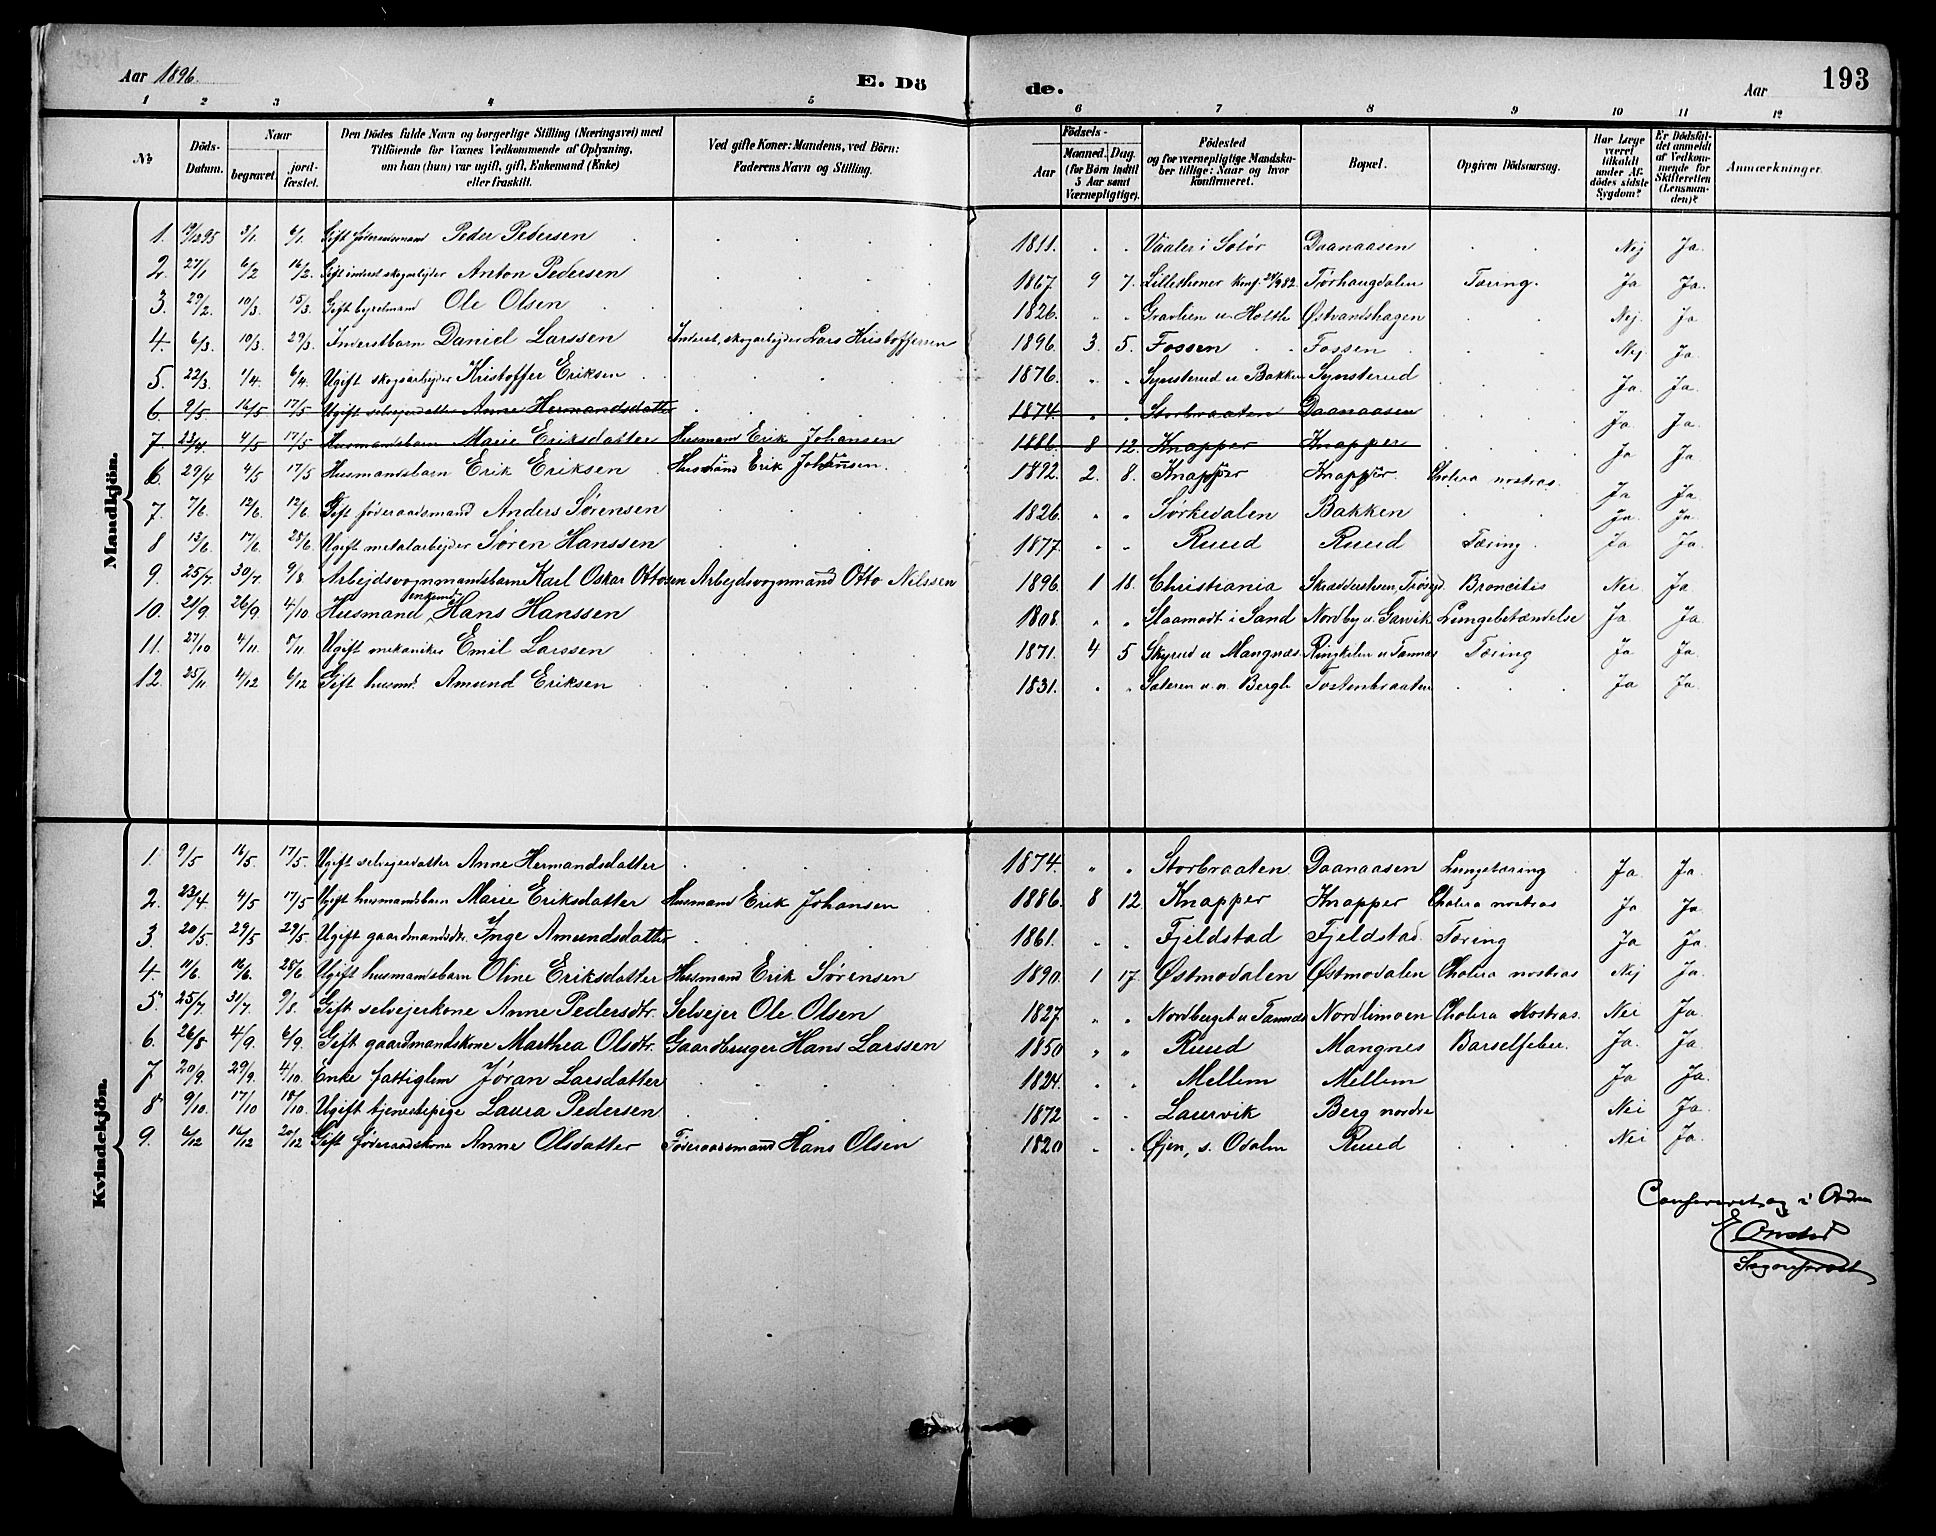 Aar 1896.
E. Dö
de.
Aar
193
1 2 3 4 5 6 7 8 9 10 11 12
No
Döds-Datum.
Naar
begravet.
jord-fæstet.
Den Dödes fulde Navn og borgerlige Stilling (Næringsvei) med
Tilföiende for Voxnes Vedkommende af Oplysning,
om han (hun) var ugift, gift, Enkemand (Enke)
eller fraskilt.
Ved gifte Koner: Mandens, ved Börn:
Faderens Navn og Stilling.
Födsels-
Aar
Maaned. Dag.
(for Börn indtil
5 Aar samt
Værnepligtige).
Födested
og for værnepligtige Mandska-
ber tillige: Naar og hvor
konfirmeret.
Bopæl.
Opgiven Dödsaarsag.
Har Læge
været
tilkaldt
under Af-
dödes sidste
Sygdom?
Er Dödsfal-
det anmeldt
af Vedkom-
mende for
Skifteretten
(Lensman-
den)?
Anmærkninger.
Mandkjön.
1. 19/12 95 3/1 6/1. Gift föderaadsmand Peder Pedersen 1811. " " Vaaler i Solør Daanaasen Nej Ja
2. 27/1 6/2 16/2. Gift inderst skogarbejder Anton Pedersen 1867. 9 7. Lillethener Konf. Tørhaugdalen Tæring. Ja Ja.
3. 29/2. 10/3. 15/3. Gift Ole Olsen 1826. " " Gravlien u. Holth Østvandshagen Nej. Ja
4. 6/3. 10/3. 29/3. Inderstbarn Daniel Larssen Inderst, skogarbejder Lars Kristoffersen 1896. 3. 5. Fossen Fossen Nej. Ja.
5. 22/3. 1/4. 6/4. Ugift skogsarbejder Kristoffer Eriksen 1876. " " Synsterud u. Bakken Synsterud Ja. Ja.
6. 9/5 16/5 17/5 Ugift selvejerdatter Anne Hermandsdatter 1874. " " Storbraaten Daanaasen Ja. Ja.
7. 23/4. 4/5 17/5 Husmandsbarn Marie Eriksdatter Husmand Erik Johansen 1886 8 12. Knapper Knapper Ja Ja.
6. 29/4 4/5 17/5 Husmandsbarn Erik Eriksen Husmand Erik Johansen. 1892. 2. 8. Knapper Knapper. Cholera nostras. Ja Ja.
7. 7/6. 12/6. 12/6. Gift føderaadsmand Anders Sørensen 1826. " " Sørkedalen Bakken Ja. Ja.
8 13/6. 17/6. 28/6. Ugift metalarbejder Søren Hanssen 1877. " " Ruud Ruud Tæring. Ja Ja.
9. 25/7. 30/7. 9/8 Arbejdsvognmandsbarn Karl Oskar Ottosen Arbejdsvognmand Otto Nilssen 1896. 1 18. Christiania Broncitis Nei Ja
10. 21/9. 26/9. 4/10. Husmand, enkemd. Hans Hanssen 1808. " " Staamodt i Sand Nordby u. Garvik Lungebetændelse Ja Ja.
11. 27/10 4/11. 8/11. Ugift mekaniker Emil Larssen 1871. 4 5 Skyrud u Mangnes. Ringkelen u Tannæs Tæring Ja Ja.
12. 25/11 4/12 6/12 Gift husmd. Amund Eriksen 1831. " " Bergh Tostenbraaten Ja Ja.
Kvindekjön.
1. 9/5 16/5 17/5. Ugift selvejerdatter Anne Hermandsdatter 1874. " " Storbraaten Daanaasen Lungetæring Ja Ja.
2. 23/4. 4/5 17/5 Ugift husmandsbarn Marie Eriksdatter Husmand Erik Johansen 1886 8 12. Knapper Knapper Cholera nostras Ja Ja.
3. 20/5. 29/5 29/5. Ugift gaardmandsdtr. Inge Amundsdatter 1861. " " Fjeldstad Fjeldstad. Tæring Ja Ja.
4. 11/6. 16/6. 28/6 Ugift husmandsbarn Oline Eriksdatter Husmand Erik Sørensen 1890. 1 17. Østmodalen Østmodalen Cholera nostras Nej Ja.
5. 25/7. 31/7. 9/8. Gift selvejerkone Anne Pedersdtr. Selvejer Ole Olsen 1827. " " Nordberget u. Tannæs Nordlimoen Cholera Nostras. Nei Ja.
6. 26/8 4/9. 6/9. Gift gaardmandskone Marthea Olsdtr. Gaardbruger Hans Larssen 1850 " " Ruud Mangnes Barselfeber. Ja. Ja.
7 20/9. 29/9. 4/10. Enke fattiglem Jøran Larsdatter 1824. " " Mellem Mellem Ja Ja.
8 9/10. 17/10 18/10. Ugift tjenestepige Laura Pedersen 1872 " " Laurvik Berg nordre Nei Ja.
9. 6/12 16/12 20/12 Gift føderaadskone Anne Olsdatter Føderaadsmand Hans Olsen 1820 " " Øjen, s. Odalen Ruud Nei Ja.
Confereret og i Orden
E Onstad
Sogneprest